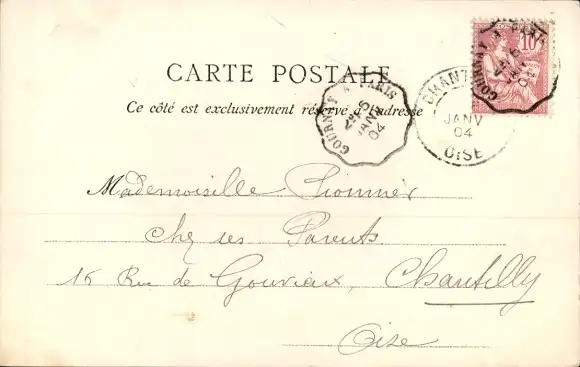 CARTE POSTALE
Ce côté est exclusivement réservé à l'adresse
GOURNAY A PARIS
2° 5
JANV
04
CHANTILLY
JANV
04
OISE
10
GOURNAY A PARIS
JANV
04
Mademoiselle Pionnier
Chez ses Parents
15 Rue de Gouvieux, Chantilly
Oise